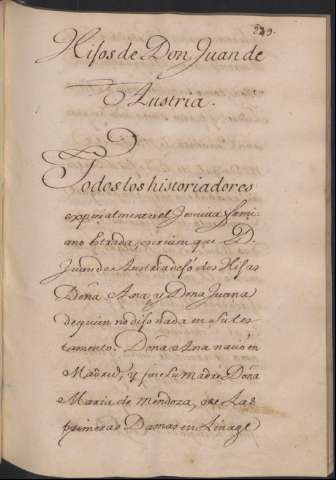 239.
Hijos de Don Juan de
Austria.
Todos los historiadores
espicialmente el Jesuita Fami
ano Estrada, escriven que D.
Juan de Austria dejó dos Hijas
Doña Ana, y Doña Juana
de quien no dijo nada en su tes-
tamento. Doña Ana nació en
Madrid, y fue su Madre Doña
Maria de Mendoza, de las
primeras Damas en Linage